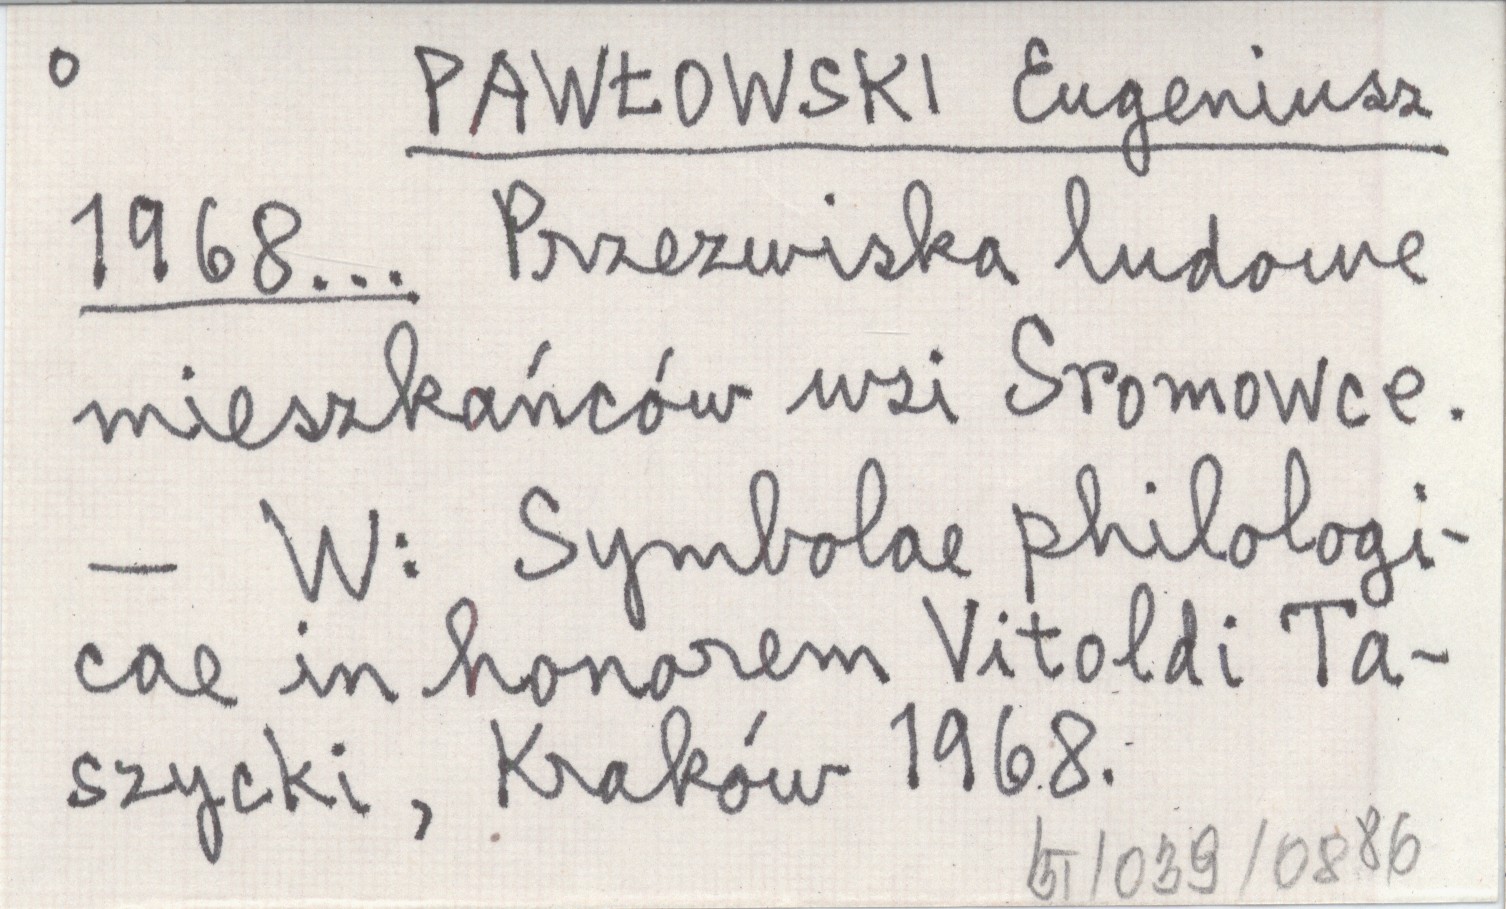 o PAWŁOWSKI Eugeniusz
1968... Przezwiska ludowe
mieszkańców wsi Sromowce.
— W: Symbolae philologi-
cae in honorem Vitoldi Ta-
szycki, Kraków 1968.
/039/0886